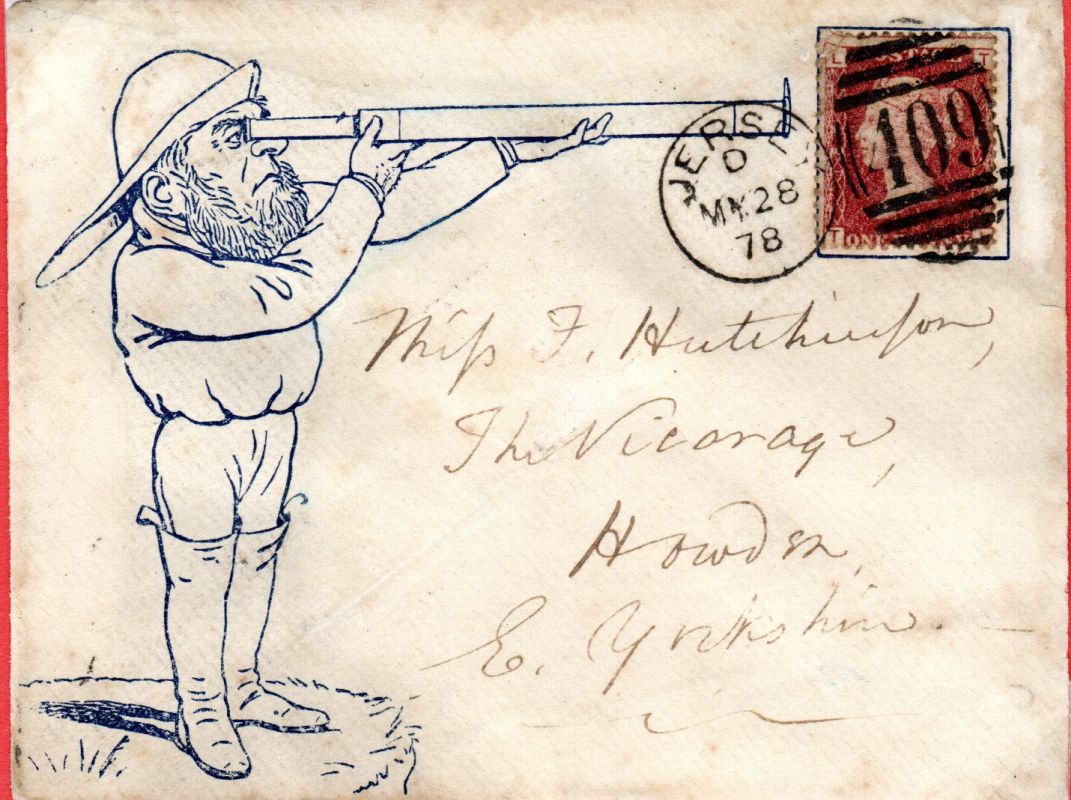 JERSEY
D
MY 28
78
409
L T
T L
Miss F. Hutchinson,
The Vicarage,
Howden,
E. Yorkshire.